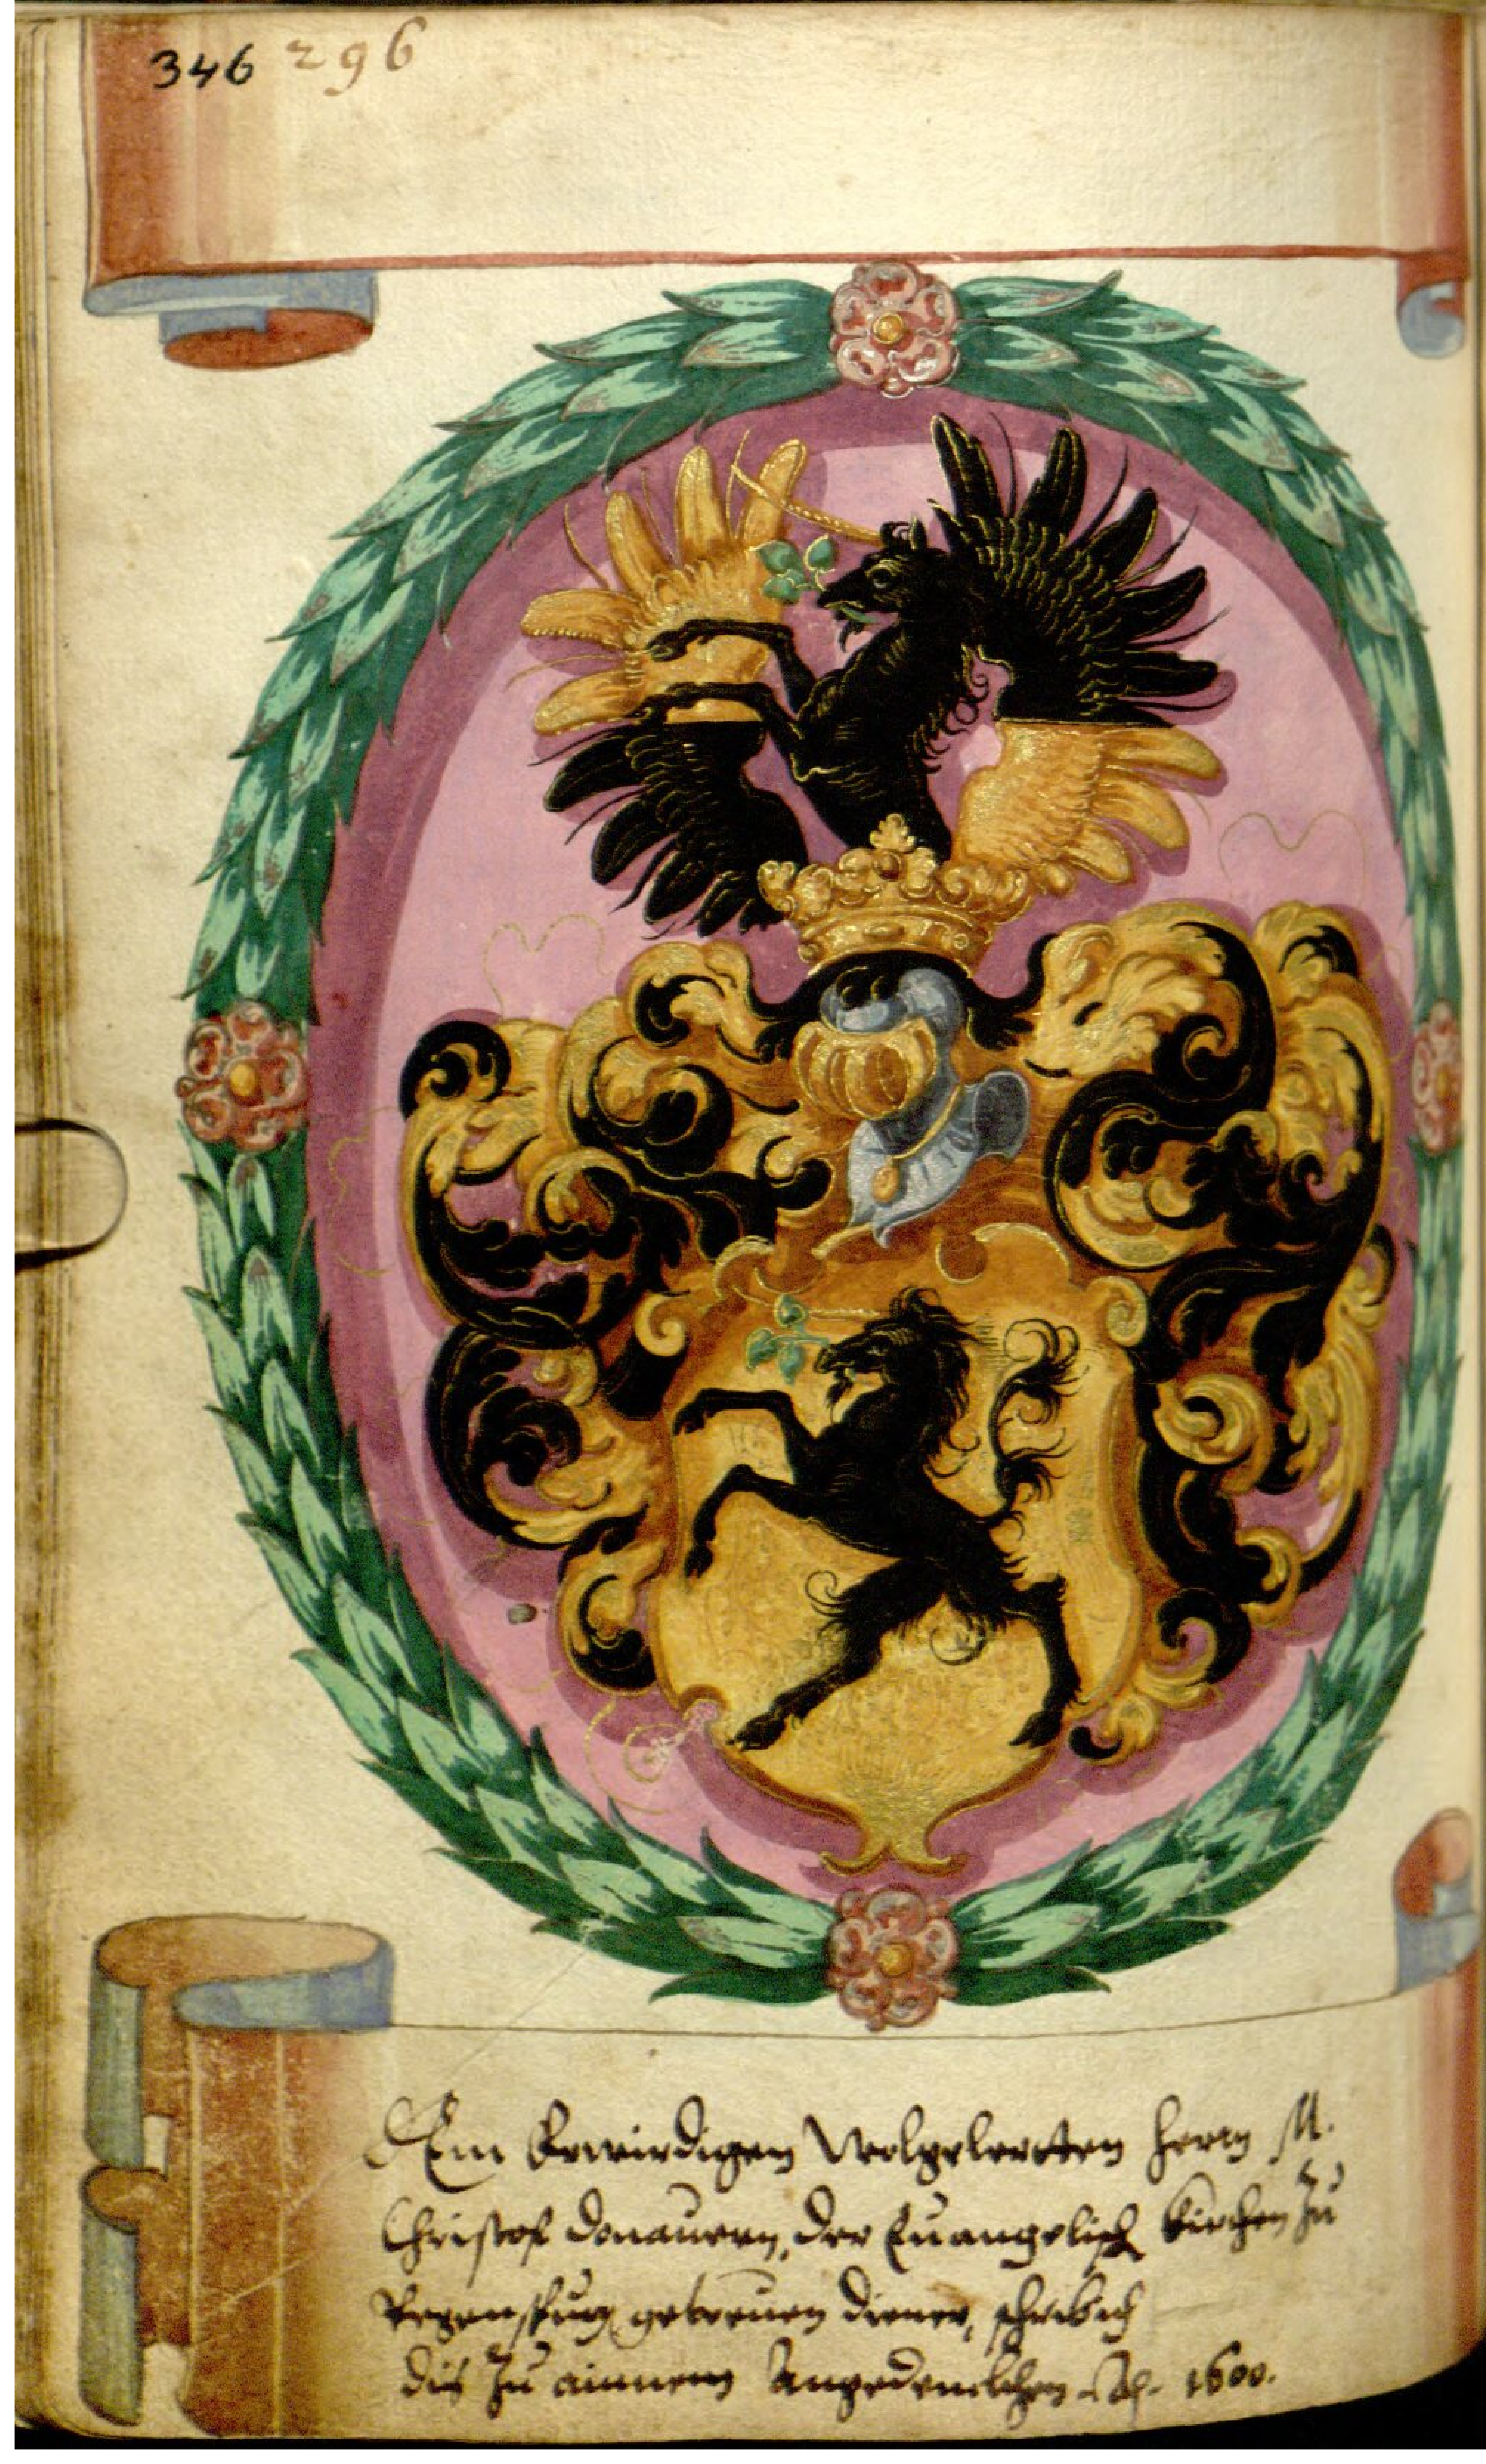 346 296
Dem Erwirdigen Wolgelertten herrn M.
Christof Donauern, der Euangelisch Kirchen zu
Regenspurg getreuen diener, schreib ich
dis zu ainnem Angedenckhen. Ao. 1600.